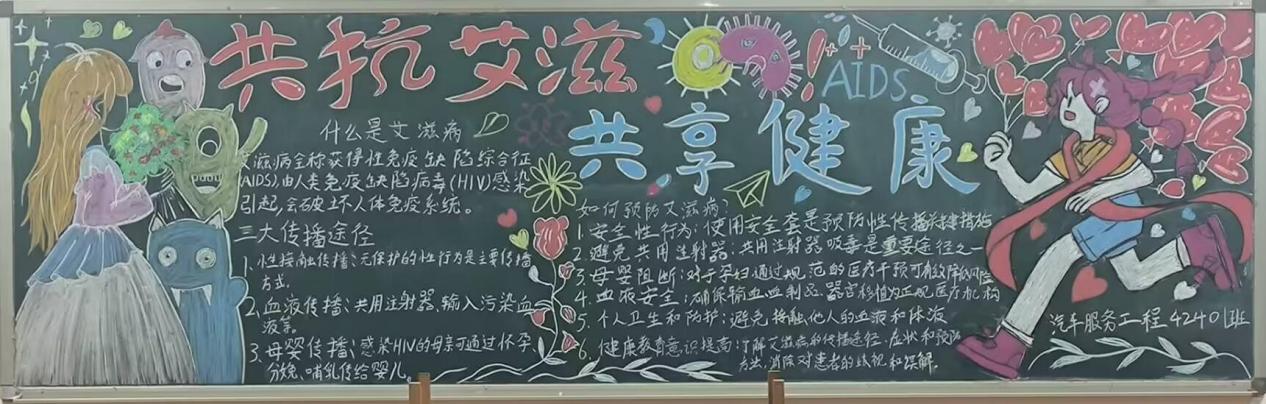 共抗艾滋
AIDS
共享健康
什么是艾滋病
艾滋病全称获得性免疫缺陷综合征
(AIDS),由人类免疫缺陷病毒(HIV)感染
引起,会破坏人体免疫系统。
三大传播途径
1、性接触传播:无保护的性行为是主要传播
方式。
2、血液传播:共用注射器、输入污染血
液等。
3、母婴传播:感染HIV的母亲可通过怀孕、
分娩、哺乳传给婴儿。
如何预防艾滋病?
1.安全性行为:使用安全套是预防性传播关键措施
2.避免共用注射器:共用注射器吸毒是重要途径之一
3.母婴阻断:对于孕妇通过规范的医疗干预可有效降低风险
4.血液安全:确保输血血制品、器官移植为正规医疗机构
5.个人卫生和防护:避免接触他人的血液和体液
6.健康教育意识提高:了解艾滋病的传播途径、症状和预防
方法,消除对患者的歧视和误解。
汽车服务工程42401班